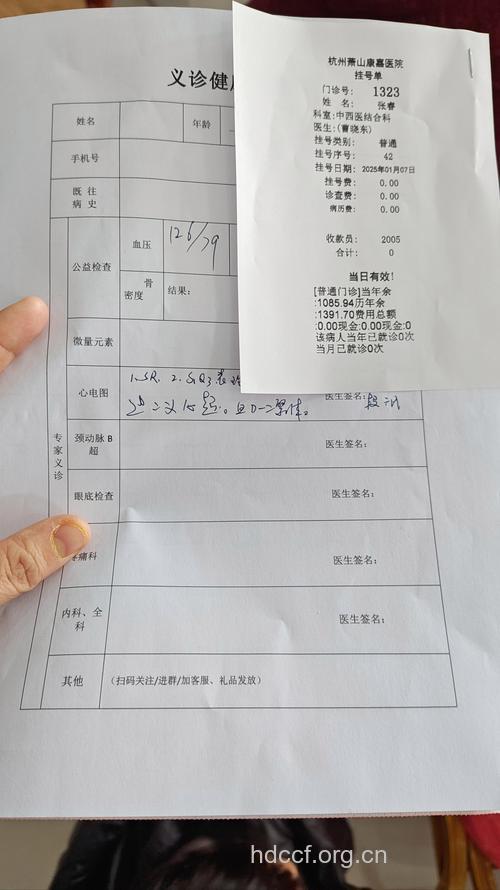 义诊健
姓名
年龄
手机号
既往
病史
公益检查
血压
126/79
骨
密度
结果：
微量元素
专家义诊
心电图
1.SR. 2.
医生签名：
颈动脉 B
超
医生签名：
眼底检查
医生签名：
疼痛科
医生签名：
内科、全
科
医生签名：
其他
（扫码关注/进群/加客服、礼品发放）
杭州萧山康嘉医院
挂号单
门诊号： 1323
姓 名： 张睿
科室：中西医结合科
医生：(曹晓东)
挂号类别： 普通
挂号序号： 42
挂号日期： 2025年01月07日
挂号费： 0.00
诊查费： 0.00
病历费： 0.00
收款员： 2005
合计： 0
当日有效！
[普通门诊]当年余
:1085.94历年余
:1391.70费用总额
:0.00现金:0.00现金:0
该病人当年已就诊0次
当月已就诊0次
hdccf.org.cn